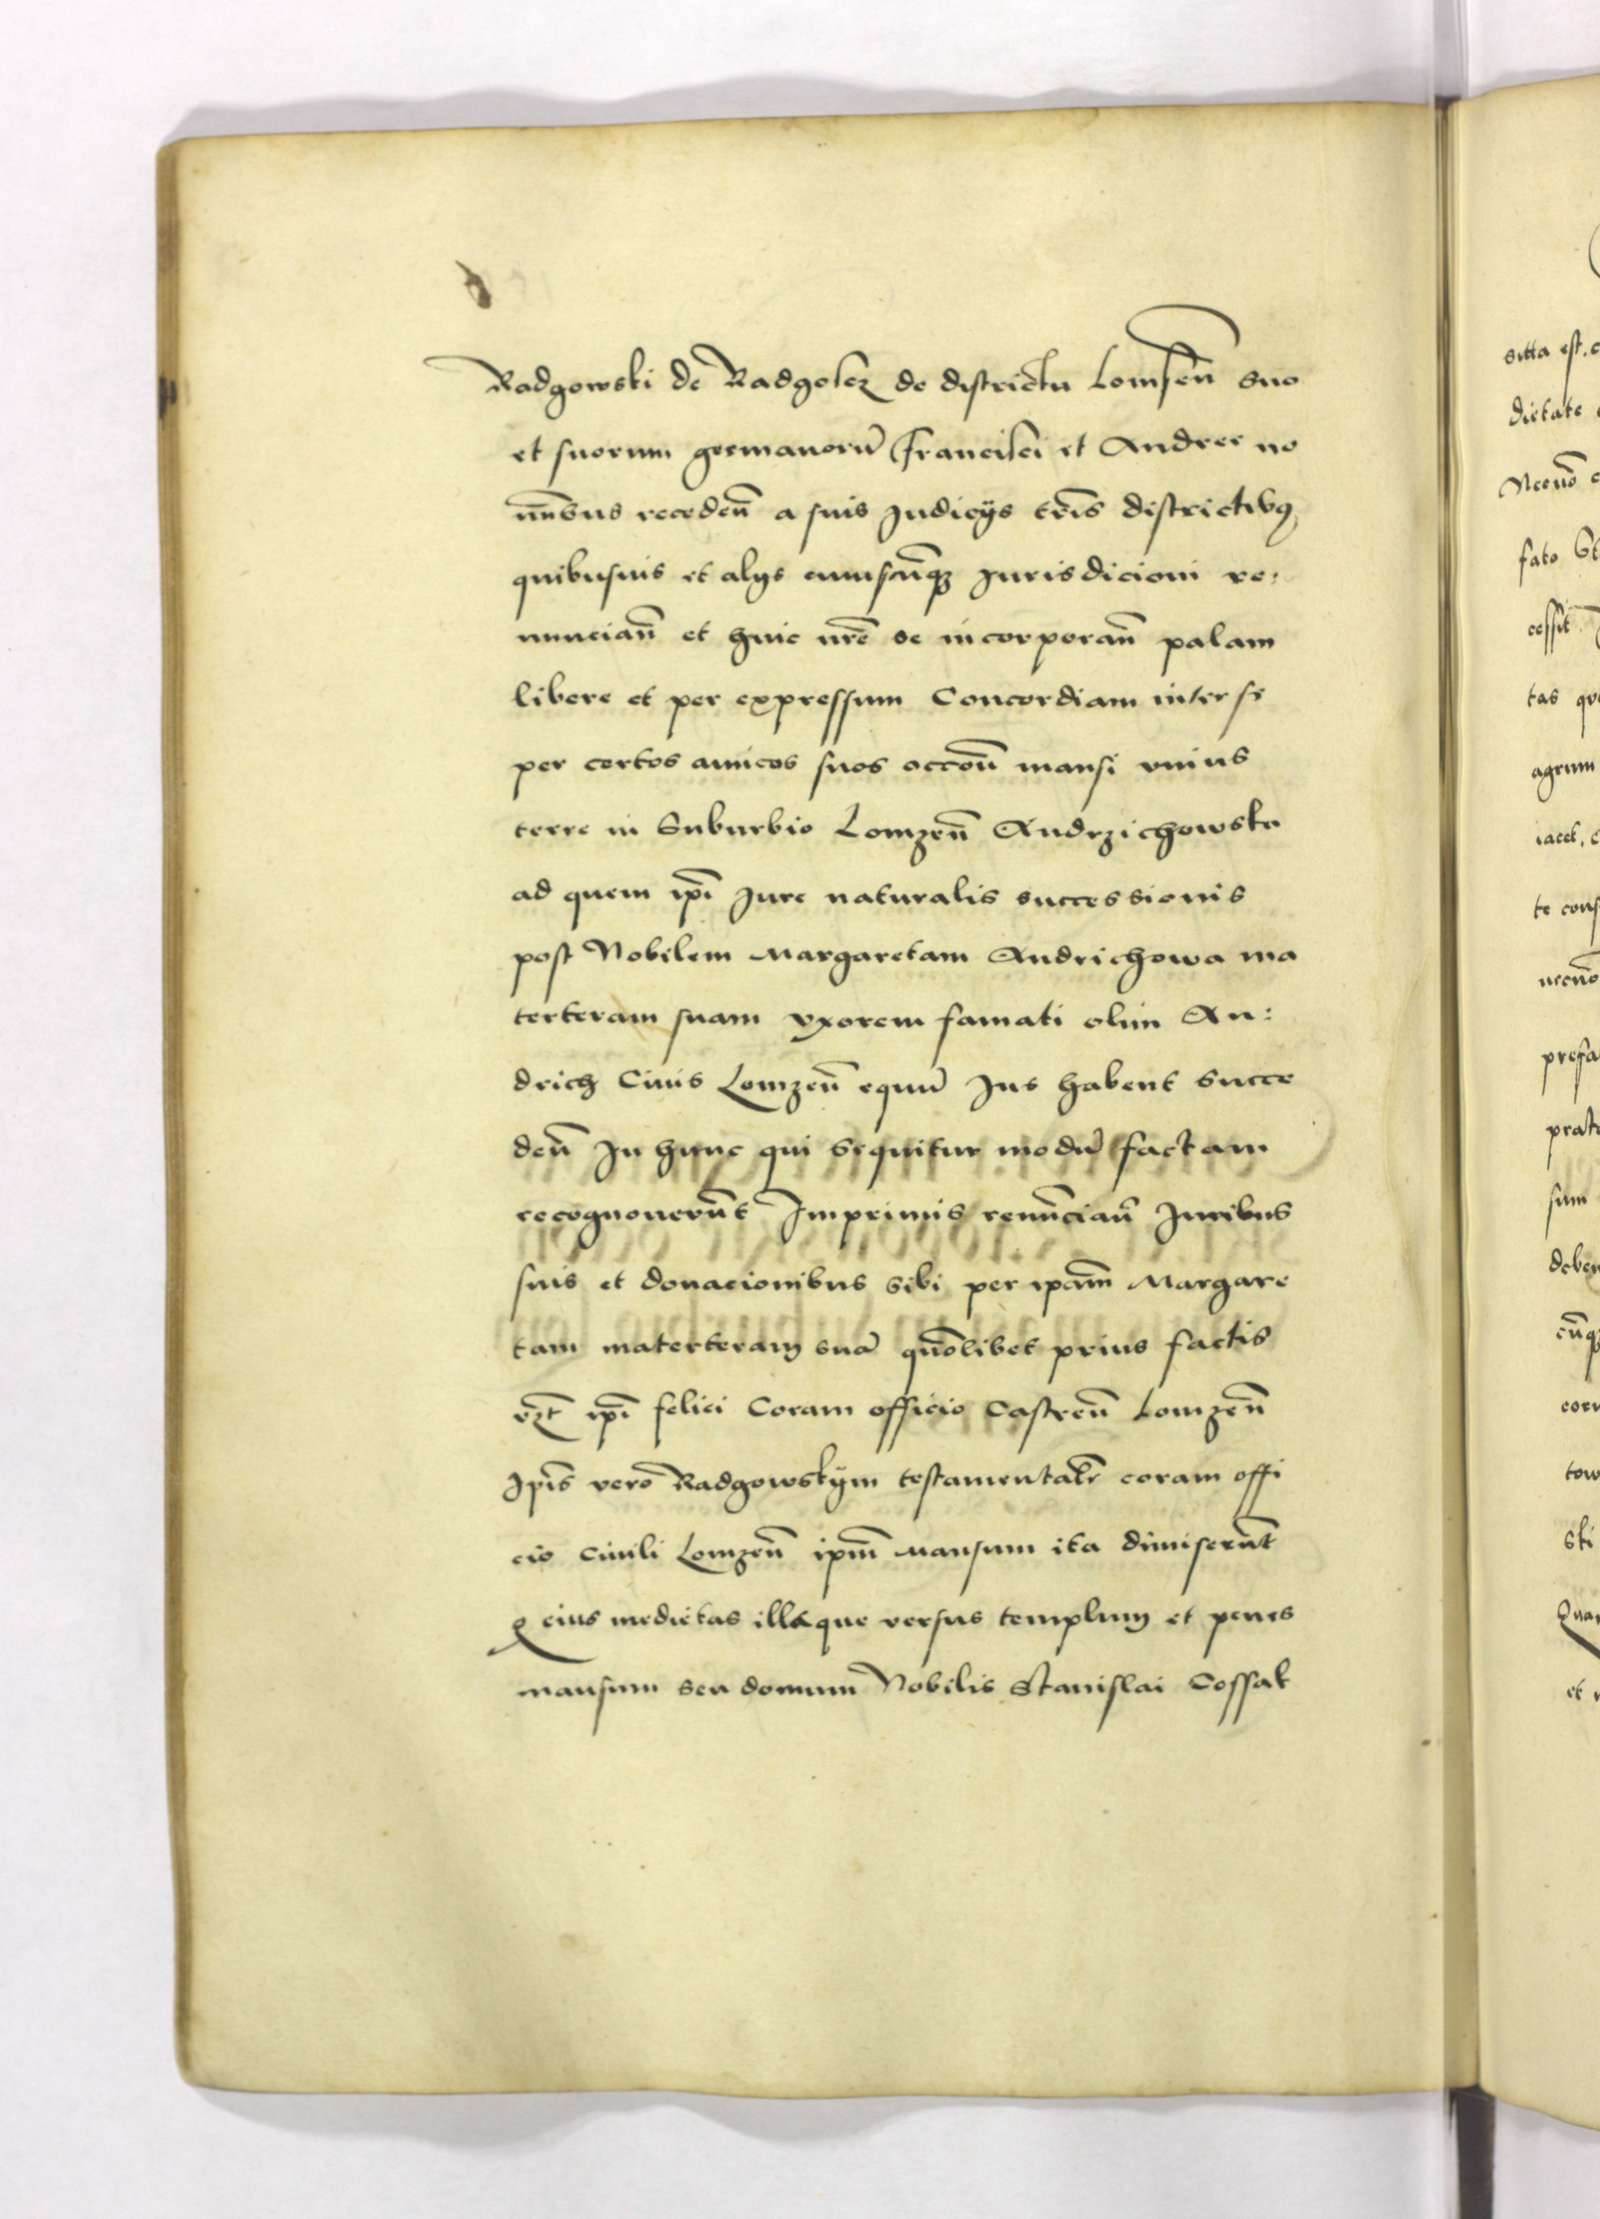 Radgowski de Radgoscz de districtu Lomsen̄ suo
et suorum germanorū Francisci et Andree no
mībus receden̄ a suis Judicÿs tris districtibꝫ
quibusuis et alÿs cuiuscūqꝫ Jurisdicioni re:
nuncian̄ et huic nr̄e se incorporan̄ palam
libere et per expressum Concordiam inter se
per certos amicos suos occōn mansi vnius
terre in Suburbio Lomzen̄ Andrzichowska
ad quem ipī Jure naturalis successionis
post Nobilem Margaretam Andrichowa ma
terteram suam vxorem famati olim An:
drich Ciuis Lomzen̄ equū Jus habent succe
den̄ In hunc qui sequitur modū factam
recognouerūt Imprimis renūncian̄ Juribus
suis et donacionibus sibi per ipam̄ Margare
tam materteram suā quōlibet prius factis
vꝫt ipī felici Coram officio Castren̄ Lomzen̄
Ipīs vero Radgowskÿm testamentalr̄ coram offi
cio Ciuili Lomzen̄ ipm̄ Mansum ita dimiserūt
ꝙ eius medietas illa que versus templum et penes
mansum seu domum Nobilis Stanislai Cossak
sitta est.
dietate
Necnō
fato
cessit
tas
agrum
iacet,
te cons
necnō
prefa
prat
sum
deben
cūqꝫ
tow
ski
et